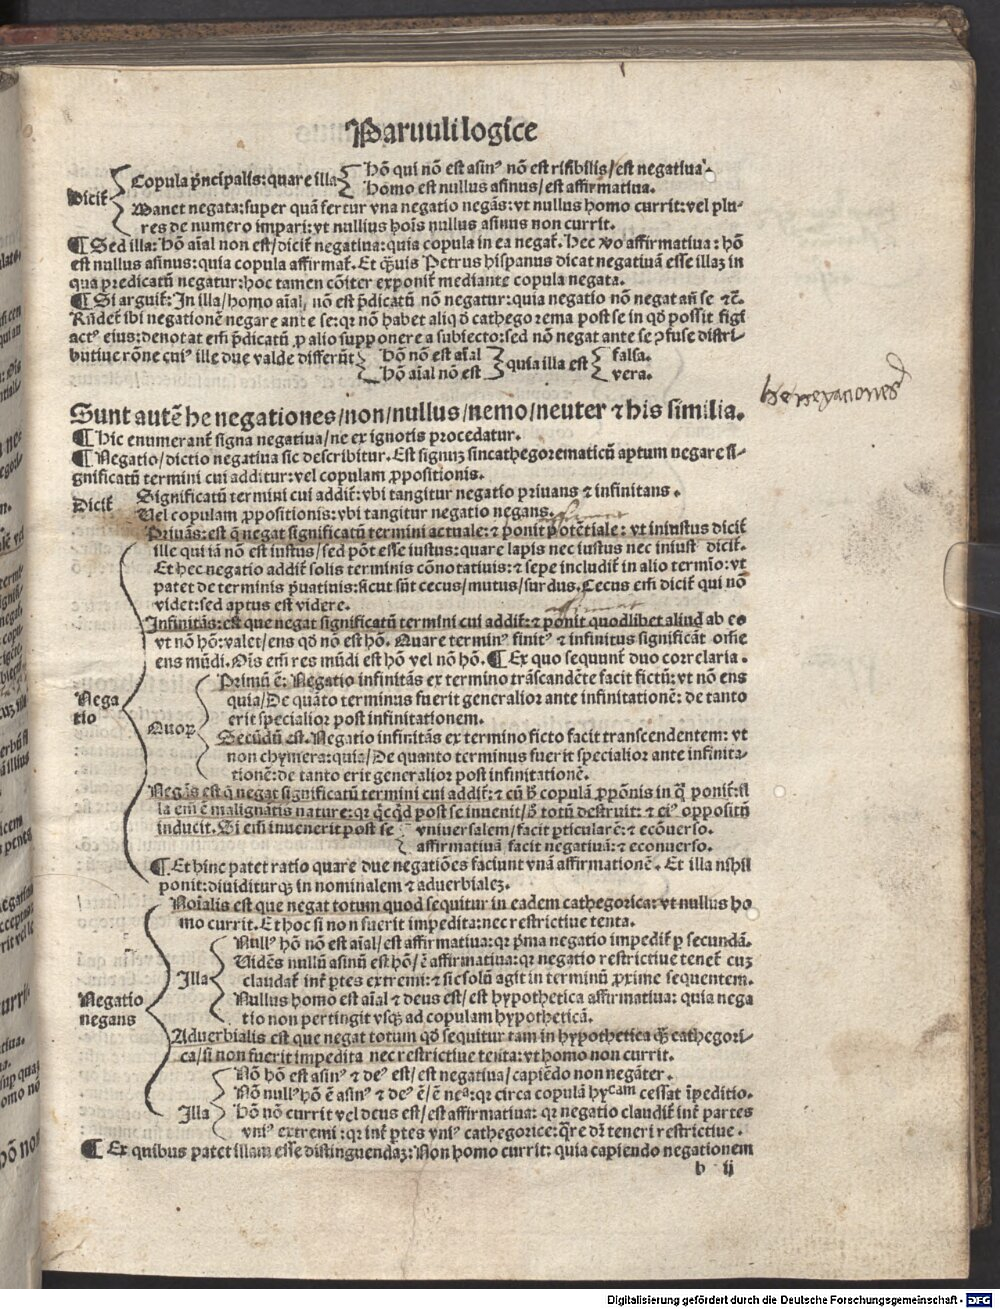 Paruuli logice
Hõ qui nõ est asinꝰ nõ est risibilis/est negatiua.
Dicit͛ Copula p̃ncipalis: quare illa
Homo est nullus asinus/est affirmatiua.
Manet negata: super quã fertur vna negatio negãs: vt nullus homo currit: vel plu-
res de numero impari: vt nullius hoĩs nullus asinus non currit.
¶ Sed illa: Hõ aĩal non est/dicit͛ negatiua: quia copula in ea negat͛. Hec ꝟo affirmatiua: hõ
est nullus asinus: quia copula affirmat͛. Et q̃uis Petrus hispanus dicat negatiuã esse illaꝫ in
qua predicatũ negatur: hoc tamen cõiter exponit͛ mediante copula negata.
¶ Si arguit͛: In illa/homo aĩal, nõ est p̃dicatũ nõ negatur: quia negatio nõ negat añ se ⁊c̃.
Rñdet͛ ibi negationẽ negare ante se: qꝛ nõ habet aliqd̾ cathegorema post se in qd̾ possit figi
actꝰ eius: denotat em̃ p̃dicatũ ꝓ alio supponere a subiecto: sed nõ negat ante se ꝯfuse distri-
butiue rõne cuiꝰ ille due valde differũt
Hõ nõ est aĩal
Hõ aĩal nõ est
quia illa est
falsa.
vera.
he negationes
Sunt autẽ he negationes/non/nullus/nemo/neuter ⁊ his similia.
¶ Hic enumerant͛ signa negatiua/ne ex ignotis procedatur.
¶ Negatio/dictio negatiua sic describitur. Est signuꝫ sincathegorematicũ aptum negare si-
gnificatũ termini cui additur: vel copulam ꝓpositionis.
Dicit͛ Significatũ termini cui addit͛: vbi tangitur negatio priuans ⁊ infinitans.
Vel copulam ꝓpositionis: vbi tangitur negatio negans.
Priuãs: est q̃ negat significatũ termini actuale: ⁊ ponit potẽtiale: vt iniustus dicit͛
ille qui iã nõ est iustus/sed põt esse iustus: quare lapis nec iustus nec iniustꝰ dicit͛.
Et hec negatio addit͛ solis terminis cõnotatiuis: ⁊ sepe includit͛ in alio termĩo: vt
patet de terminis p̃uatiuis: sicut sũt cecus/mutus/surdus. Cecus em̃ dicit͛ qui nõ
videt: sed aptus est videre.
Infinitãs: est que negat significatũ termini cui addit͛: ⁊ ponit quodlibet aliud ab eo
vt nõ hõ: valet/ens qd̾ nõ est hõ. Quare terminꝰ finitꝰ ⁊ infinitus significãt om̃e
ens mũdi. Oĩs em̃ res mũdi est hõ vel nõ hõ. ¶ Ex quo sequunt͛ duo correlaria.
Primũ ẽ: Negatio infinitãs ex termino trãscandẽte facit fictũ: vt nõ ens
quia/De quãto terminus fuerit generalior ante infinitationẽ: de tanto
erit specialior post infinitationem.
Negatio
Quoꝝ
Secũdũ est. Negatio infinitãs ex termino ficto facit transcendentem: vt
non chymera: quia/De quanto terminus fuerit specialior ante infinita-
tionẽ: de tanto erit generalior post infinitationẽ.
Negãs est q̃ negat significatũ termini cui addit͛: ⁊ cũ h̾ copulã ꝓpõnis in q̃ ponit͛: il
la em̃ ẽ malignãtis nature: qꝛ q̃cq̃d post se inuenit/h̾ totũ destruit: ⁊ eiꝰ oppositũ
inducit. Si em̃ inuenerit post se
vniuersalem/facit ꝑticularẽ: ⁊ ecõuerso.
affirmatiuã facit negatiuã: ⁊ econuerso.
¶ Et hinc patet ratio quare due negatiões faciunt vnã affirmationẽ. Et illa nihil
ponit: diuiditurqꝫ in nominalem ⁊ aduerbialeꝫ.
Noĩalis est que negat totum quod sequitur in eadem cathegorica: vt nullus ho
mo currit. Et hoc si non fuerit impedita: nec restrictiue tenta.
Nullꝰ hõ nõ est aĩal/est affirmatiua: qꝛ p̃ma negatio impedit͛ ꝑ secundã.
Vidẽs nullũ asinũ est hõ/ẽ affirmatiua: qꝛ negatio restrictiue tenet͛ cuꝫ
Illa claudat͛ int͛ ꝑtes extremi: ⁊ sic solũ agit in terminũ ꝓxime sequentem.
Negatio negans
Nullus homo est aĩal ⁊ deus est/est hypothetica affirmatiua: quia nega
tio non pertingit vsqꝫ ad copulam hypotheticã.
Aduerbialis est que negat totum qd̾ sequitur tam in hypothetica q̃ꝫ cathegori-
ca/si non fuerit impedita nec restrictiue tenta: vt homo non currit.
Nõ hõ est asinꝰ ⁊ deꝰ est/est negatiua/capiẽdo non negãter.
Nõ nullꝰ hõ ẽ asinꝰ ⁊ deꝰ ẽ/ẽ neª: qꝛ circa copulã hycam cessat ĩpeditio.
Illa Hõ nõ currit vel deus est/est affirmatiua: qꝛ negatio claudit͛ int͛ partes
vniꝰ extremi: qꝛ int͛ ꝑtes vniꝰ cathegorice: q̃re dꝛ̃ teneri restrictiue.
¶ Ex quibus patet illam esse distinguendaꝫ: Non homo currit: quia capiendo negationem
b ij
Digitalisierung gefördert durch die Deutsche Forschungsgemeinschaft - DFG